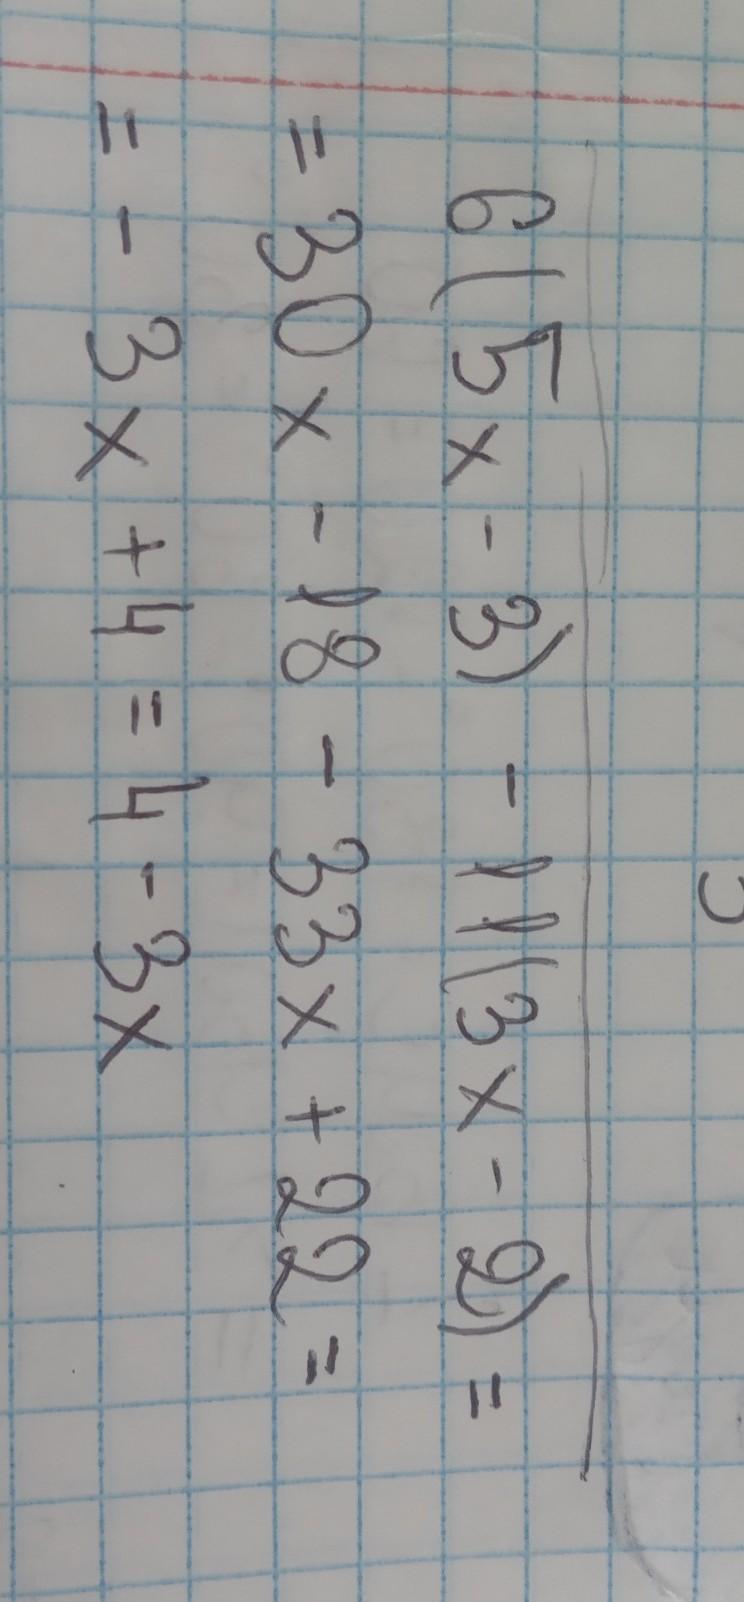 6(5x-3) - 11(3x-2) =
= 30x - 18 - 33x + 22 =
= - 3x + 4 = 4 - 3x